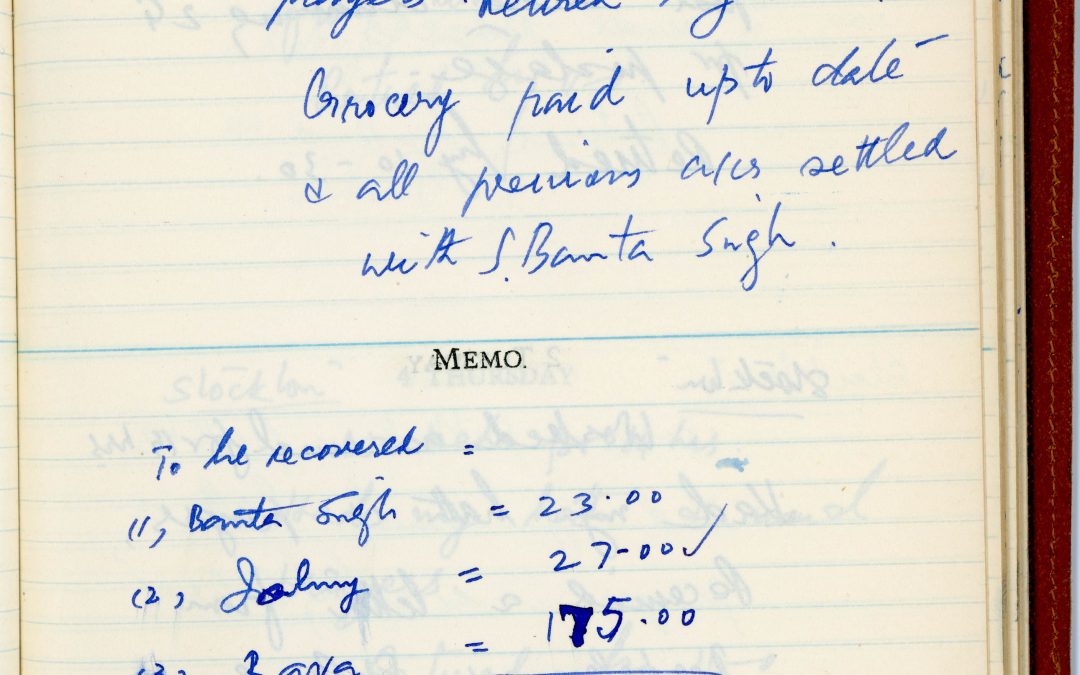 prayers. retired by
Grocery paid upto date
& all previous a/cs settled
with S. Banta Singh.
MEMO.
To be recovered =
(1) Banta Singh = 23.00
(2) = 27-00 ✓
(3) = 175.00